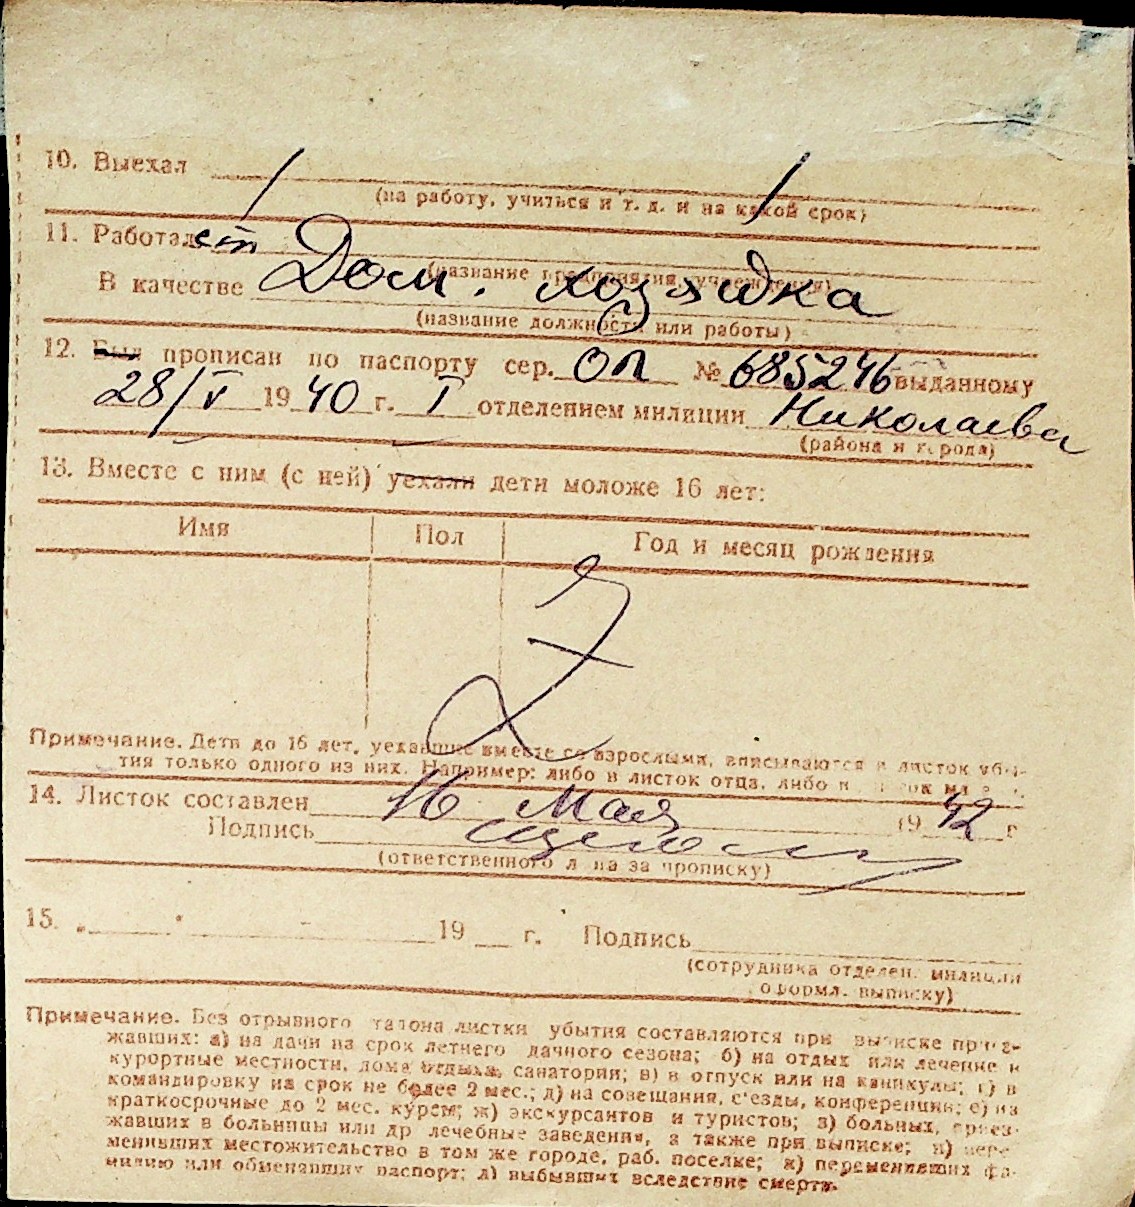 10. Выехал
(на работу, учиться и т. д. и на какой срок)
11. Работает
(название предприятия, учреждения)
В качестве Дом. хозяйка
(название должности или работы)
12. Был прописан по паспорту сер. ОП № 685246 выданному
28/V 1940 г. I отделением милиции Николаева
(района и города)
13. Вместе с ним (с ней) уехали дети моложе 16 лет:
Имя Пол Год и месяц рождения
Примечание. Дети до 16 лет, уехавшие вместе со взрослыми, вписываются в листок убы-
тия только одного из них. Например: либо в листок отца, либо в
14. Листок составлен 16 Мая 1942 г
Подпись
(ответственного лица за прописку)
15. „ " 19 г. Подпись
(сотрудника отделен. милиции
оформл. выписку)
Примечание. Без отрывного талона листки убытия составляются при выписке приез-
жавших: а) на дачи на срок летнего дачного сезона; б) на отдых или лечение в
курортные местности, дома отдыха, санатории; в) в отпуск или на каникулы; г) в
командировку на срок не более 2 мес.; д) на совещания, с'езды, конференции; е) на
краткосрочные до 2 мес. курсы; ж) экскурсантов и туристов; з) больных, приез-
жавших в больницы или др лечебные заведения, а также при выписке; и) пере
менивших местожительство в том же городе, раб. поселке; к) переменивших фа-
милию или обменявших паспорт; л) выбывших вследствие смерти.